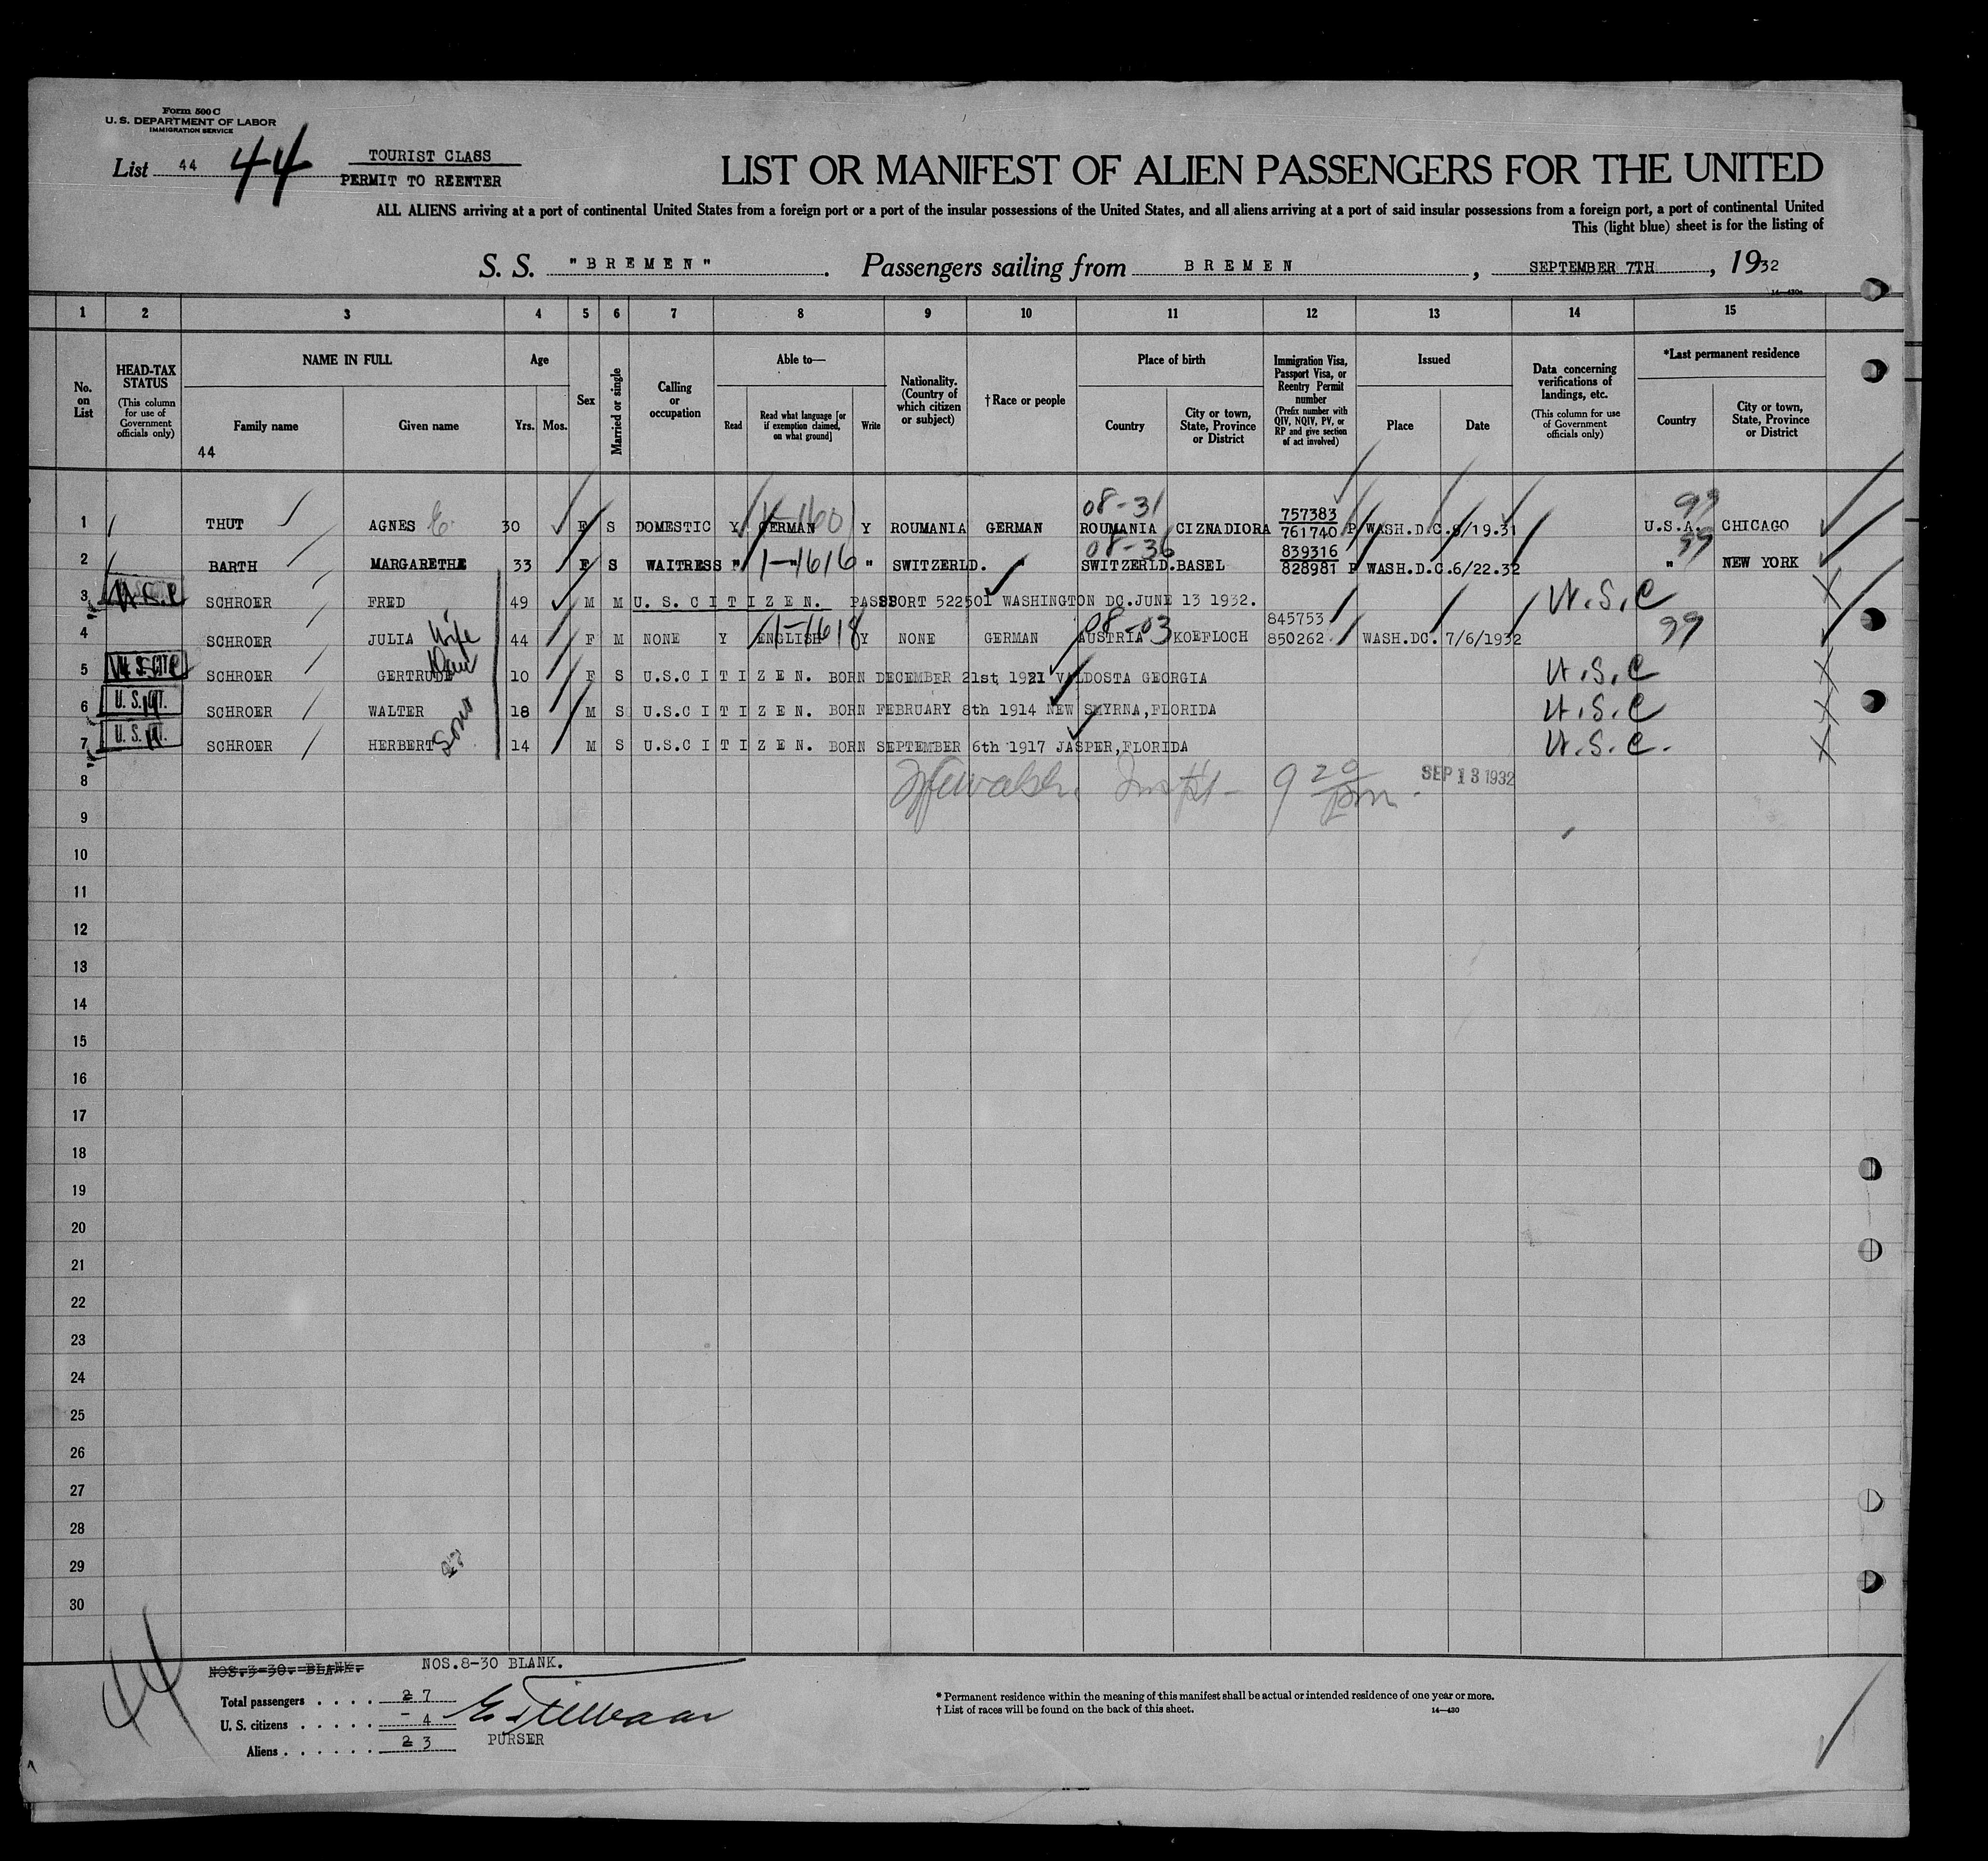 Form 500 C
U. S. DEPARTMENT OF LABOR
IMMIGRATION SERVICE
List 44 44
TOURIST CLASS
PERMIT TO REENTER
LIST OR MANIFEST OF ALIEN PASSENGERS FOR THE UNITED
ALL ALIENS arriving at a port of continental United States from a foreign port or a port of the insular possessions of the United States, and all aliens arriving at a port of said insular possessions from a foreign port, a port of continental United
This (light blue) sheet is for the listing of
S. S. "BREMEN". Passengers sailing from BREMEN, SEPTEMBER 7TH, 1932
14—430a
1 2 3 4 5 6 7 8 9 10 11 12 13 14 15
No. on List
HEAD-TAX STATUS
(This column for use of Government officials only)
NAME IN FULL
Family name
Given name
44
Age
Yrs. Mos.
Sex
Married or single
Calling or occupation
Able to—
Read
Read what language [or if exemption claimed, on what ground]
Write
Nationality. (Country of which citizen or subject)
†Race or people
Place of birth
Country
City or town, State, Province or District
Immigration Visa, Passport Visa, or Reentry Permit number
(Prefix number with QIV, NQIV, PV, or RP and give section of act involved)
Issued
Place
Date
Data concerning verifications of landings, etc.
(This column for use of Government officials only)
*Last permanent residence
Country
City or town, State, Province or District
08-31 99
1 THUT AGNES E. 30 F S DOMESTIC Y GERMAN Y ROUMANIA GERMAN ROUMANIA CIZNADIORA 757383 761740 P WASH.D.C. 8/19.31 U.S.A. CHICAGO
08-36 99
2 BARTH MARGARETHE 33 F S WAITRESS " " 1-1616 " SWITZERLD. " SWITZERLD. BASEL 839316 828981 P WASH.D.C. 6/22.32 " NEW YORK
3 U.S.C SCHROER FRED 49 M M U. S. CITIZEN. PASSPORT 522501 WASHINGTON DC. JUNE 13 1932. U.S.C
4 SCHROER JULIA Wife 44 F M NONE Y ENGLISH 1-1618 Y NONE GERMAN 08-03 AUSTRIA KOEFLOCH 845753 850262 WASH.DC. 7/6/1932 99
5 U. S. CIT SCHROER GERTRUDE Dau 10 F S U.S.CITIZEN. BORN DECEMBER 21st 1921 VALDOSTA GEORGIA U.S.C
6 U. S. CIT. SCHROER WALTER 18 M S U.S.CITIZEN. BORN FEBRUARY 8th 1914 NEW SMYRNA, FLORIDA U.S.C
7 U. S. CIT. SCHROER HERBERT Sons 14 M S U.S.CITIZEN. BORN SEPTEMBER 6th 1917 JASPER, FLORIDA U.S.C.
8 9 20 pm. SEP 13 1932
9
10
11
12
13
14
15
16
17
18
19
20
21
22
23
24
25
26
27
28
29
30
44
NOS.3-30. BLANK. NOS.8-30 BLANK.
Total passengers . . . . 2 7
U. S. citizens . . . . . - 4
Aliens . . . . . . 2 3
PURSER
* Permanent residence within the meaning of this manifest shall be actual or intended residence of one year or more.
† List of races will be found on the back of this sheet. 14—430